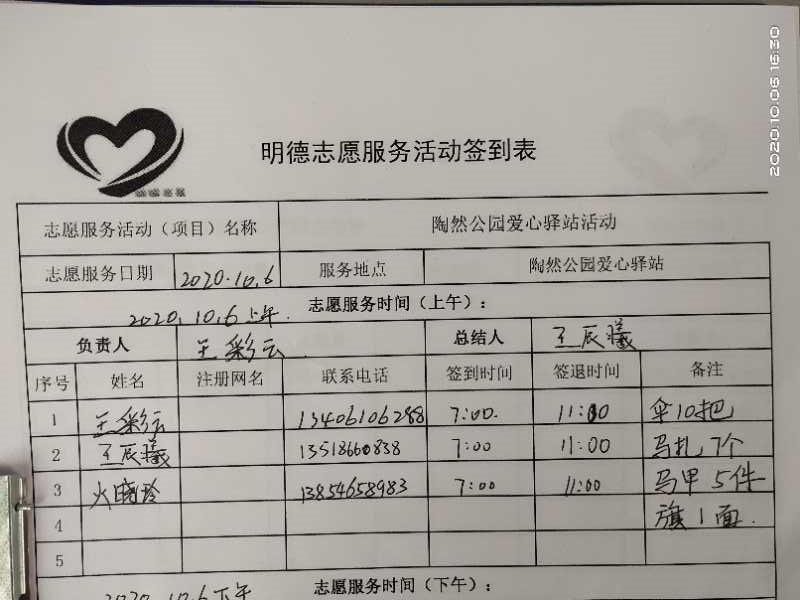 2020.10.06 16:30
明德志愿服务活动签到表
志愿服务活动（项目）名称 陶然公园爱心驿站活动
志愿服务日期 2020.10.6 服务地点 陶然公园爱心驿站
志愿服务时间（上午）：
2020.10.6上午.
负责人 王彩云 总结人 王辰曦
序号 姓名 注册网名 联系电话 签到时间 签退时间 备注
1 王彩云 13406106288 7:00. 11:00 伞10把
2 王辰曦 13518660838 7:00 11:00 马扎7个
3 火晓玲 13854658983 7:00 11:00 马甲5件
4 旗1面.
5
志愿服务时间（下午）：
2020.10.6下午